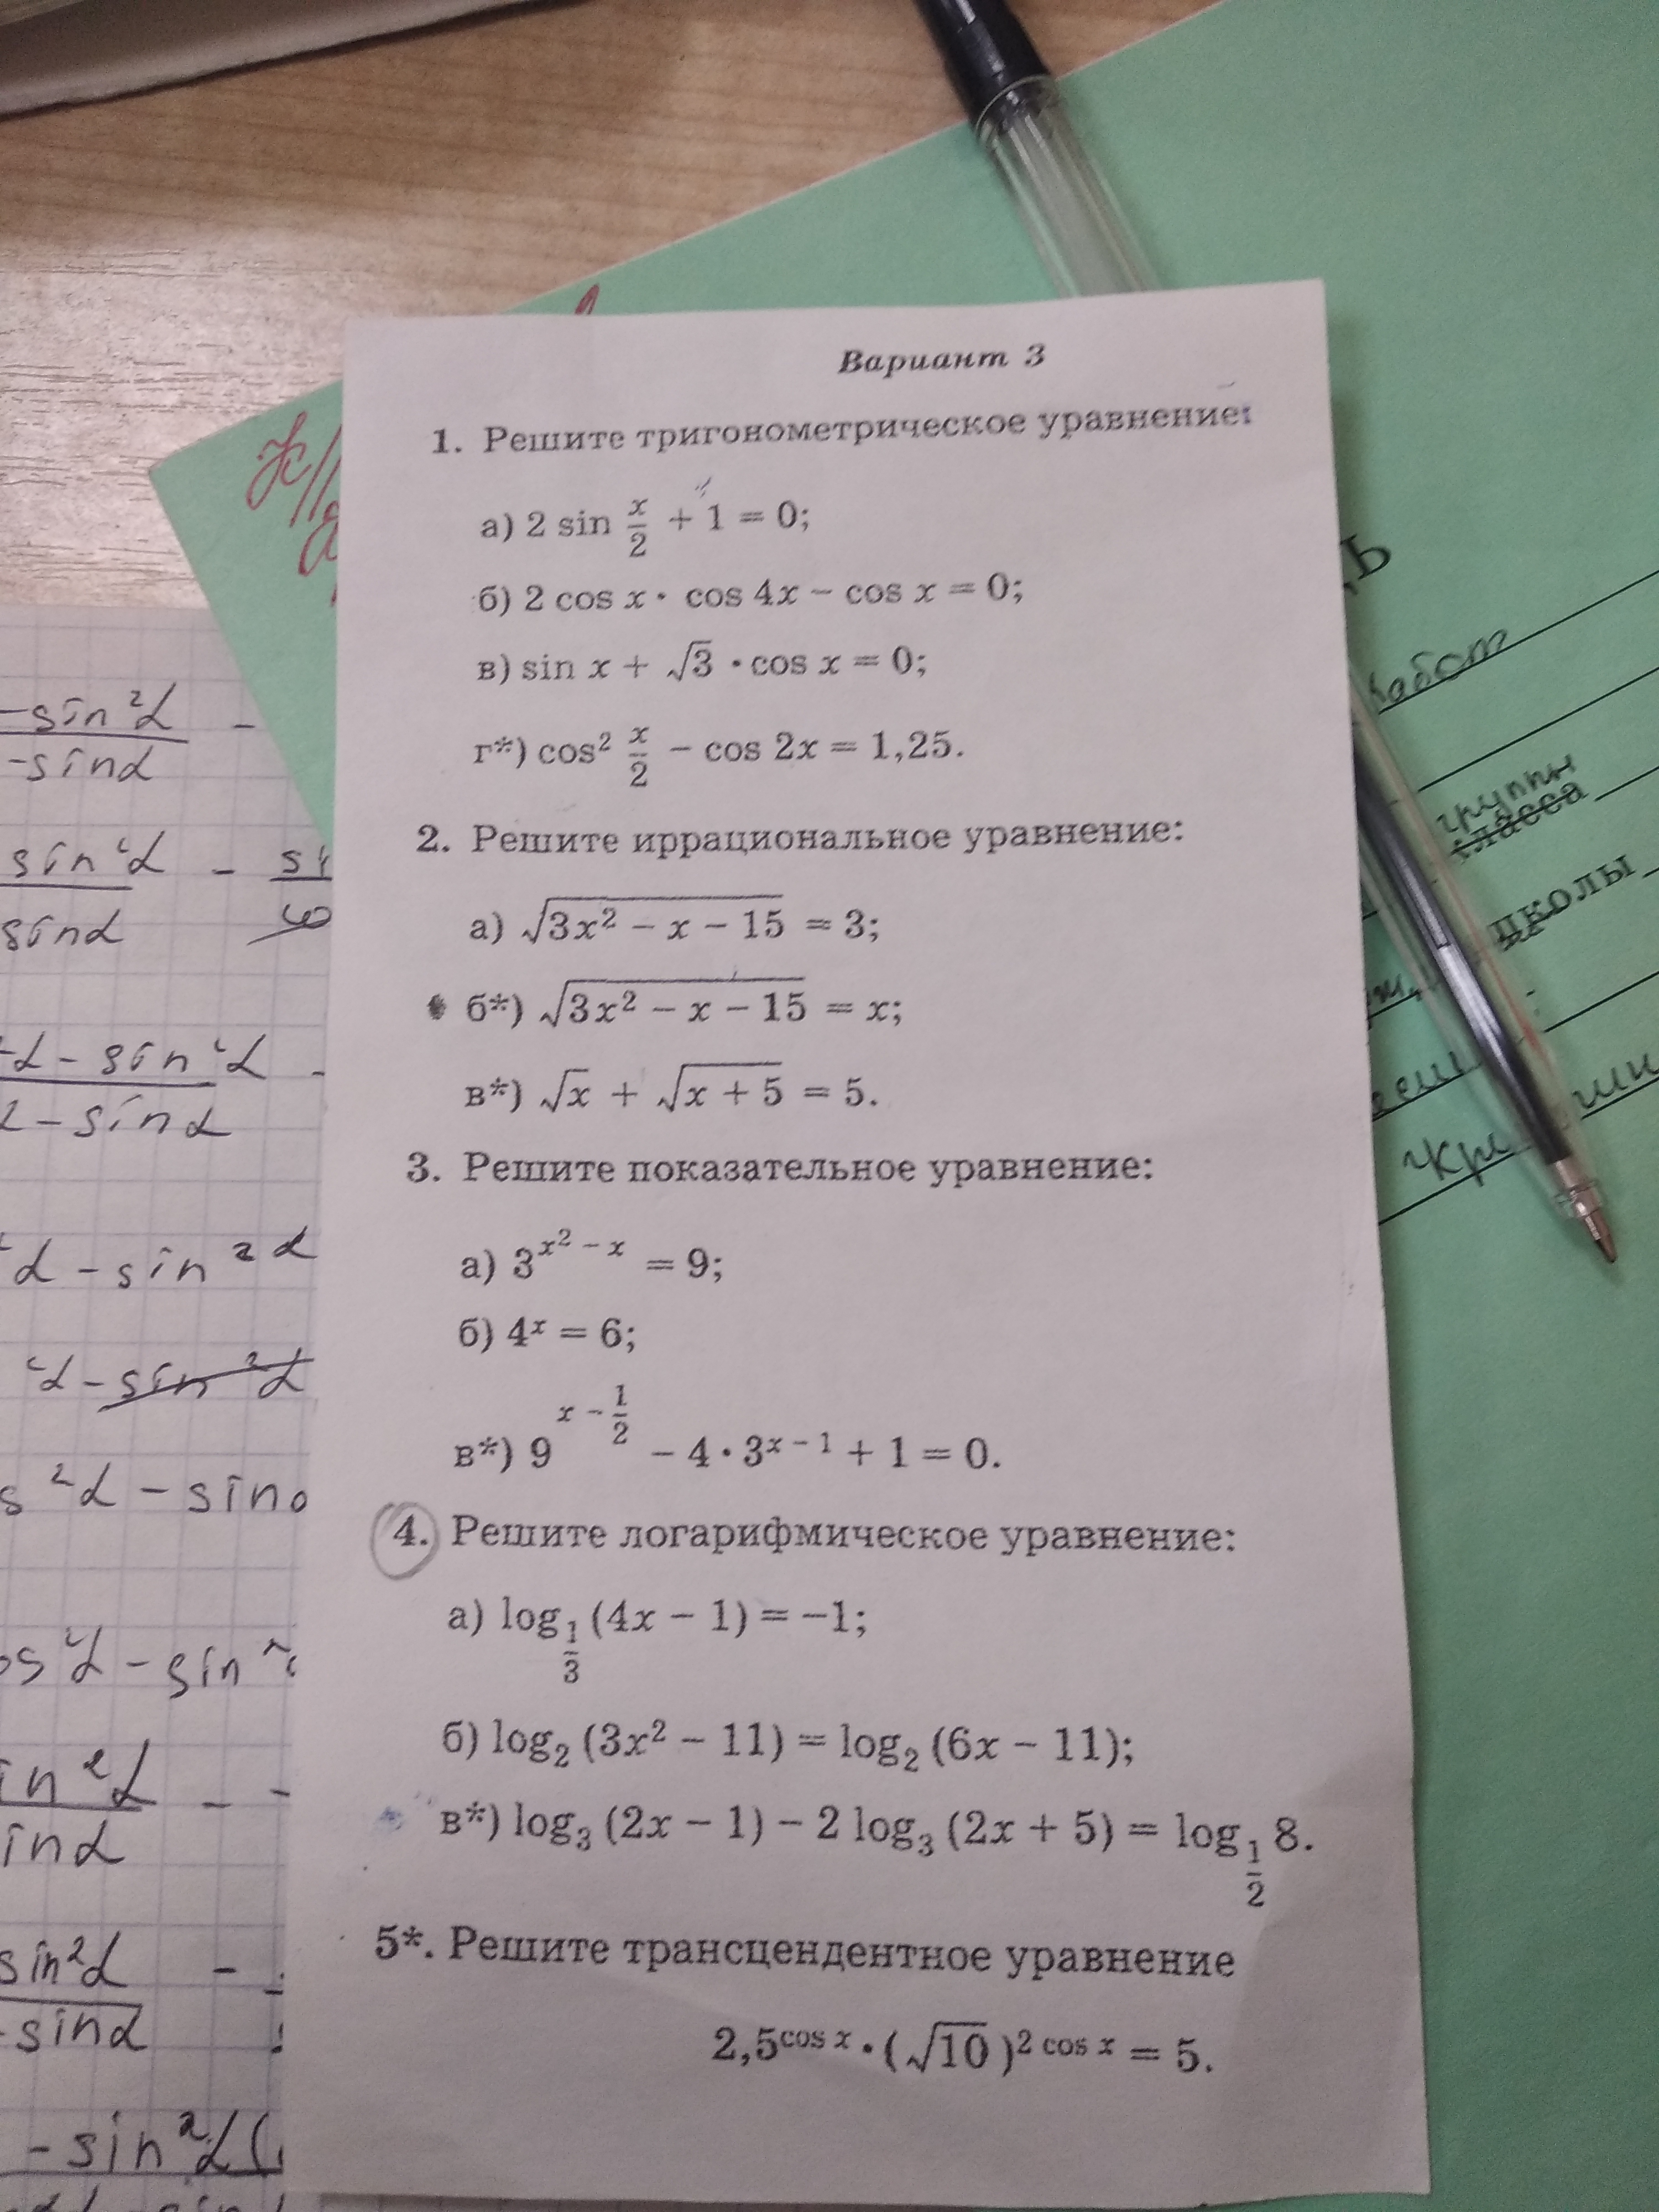 Вариант 3
1. Решите тригонометрическое уравнение:
а) 2 sin x/2 + 1 = 0;
б) 2 cos x · cos 4x − cos x = 0;
в) sin x + √3 · cos x = 0;
г*) cos² x/2 − cos 2x = 1,25.
2. Решите иррациональное уравнение:
а) √(3x² − x − 15) = 3;
б*) √(3x² − x − 15) = x;
в*) √x + √(x + 5) = 5.
3. Решите показательное уравнение:
а) 3^(x² − x) = 9;
б) 4ˣ = 6;
в*) 9^(x − 1/2) − 4 · 3^(x − 1) + 1 = 0.
4. Решите логарифмическое уравнение:
а) log_(1/3) (4x − 1) = −1;
б) log₂ (3x² − 11) = log₂ (6x − 11);
в*) log₃ (2x − 1) − 2 log₃ (2x + 5) = log_(1/2) 8.
5*. Решите трансцендентное уравнение
2,5^(cos x) · (√10)^(2 cos x) = 5.
−sin²α −
−sinα
sin²α −
sinα
α − sin²α −
2 − sinα
α − sin²α
α − sin²α
s²α − sin
os²α − sin²
in²α −
inα
sin²α −
−sinα
−sin²α(
работ
группы
класса
школы